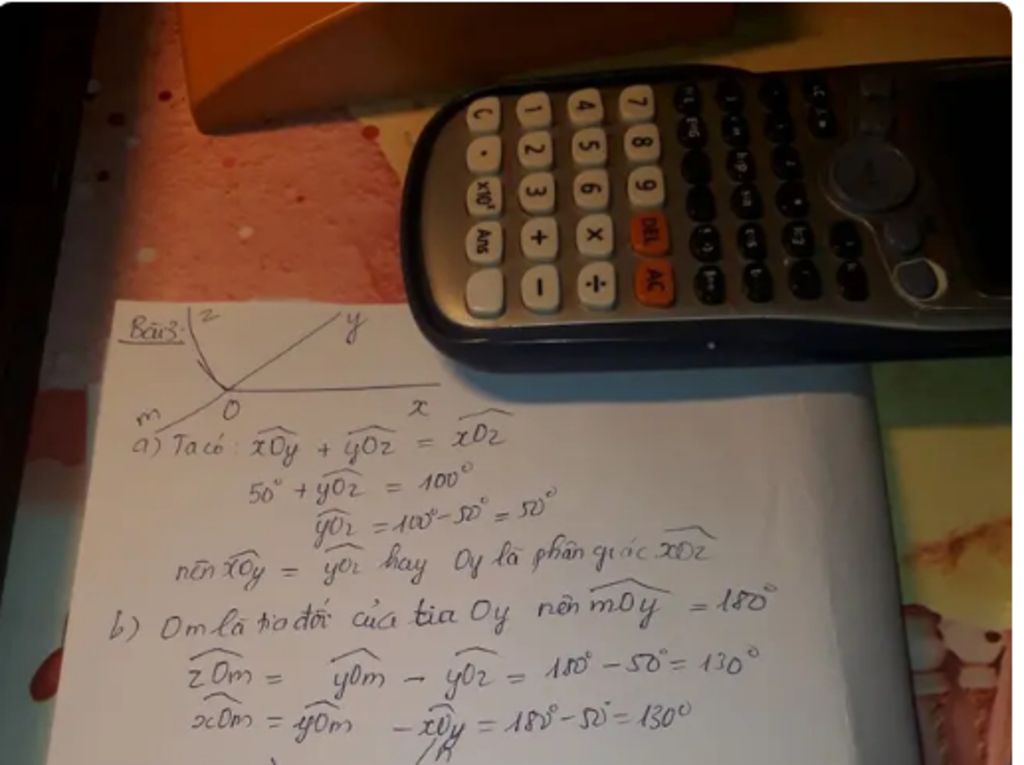 Bài 3:
z
y
m
O
x
a) Ta có: xOy + yOz = xOz
50° + yOz = 100°
yOz = 100° - 50° = 50°
nên xOy = yOz hay Oy là phân giác xOz
b) Om là tia đối của tia Oy nên mOy = 180°
zOm = yOm - yOz = 180° - 50° = 130°
xOm = yOm - xOy = 180° - 50° = 130°
C 1 4 7
. 2 5 8
x10ˣ 3 6 9
Ans + × DEL
- ÷ AC